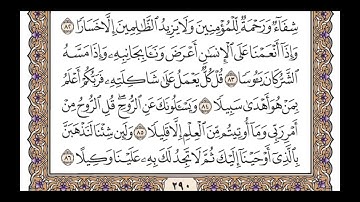 شِفَآءٌ وَرَحْمَةٌ لِّلْمُؤْمِنِينَ وَلَا يَزِيدُ ٱلظَّٰلِمِينَ إِلَّا خَسَارًا ٨٢
وَإِذَآ أَنْعَمْنَا عَلَى ٱلْإِنسَٰنِ أَعْرَضَ وَنَـَٔا بِجَانِبِهِۦ وَإِذَا مَسَّهُ
ٱلشَّرُّ كَانَ يَـُٔوسًا ٨٣ قُلْ كُلٌّ يَعْمَلُ عَلَىٰ شَاكِلَتِهِۦ فَرَبُّكُمْ أَعْلَمُ
بِمَنْ هُوَ أَهْدَىٰ سَبِيلًا ٨٤ وَيَسْـَٔلُونَكَ عَنِ ٱلرُّوحِ قُلِ ٱلرُّوحُ مِنْ
أَمْرِ رَبِّى وَمَآ أُوتِيتُم مِّنَ ٱلْعِلْمِ إِلَّا قَلِيلًا ٨٥ وَلَئِن شِئْنَا لَنَذْهَبَنَّ
بِٱلَّذِىٓ أَوْحَيْنَآ إِلَيْكَ ثُمَّ لَا تَجِدُ لَكَ بِهِۦ عَلَيْنَا وَكِيلًا ٨٦
٢٩٠